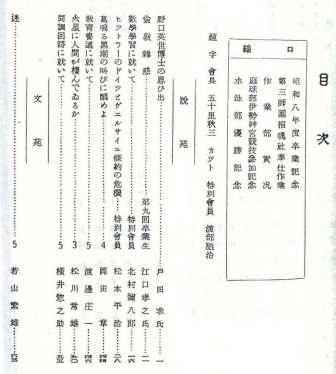 目次
口繪
昭和八年度卒業記念
第三師團招魂社奉仕作業
作業部實况
庭球部伊勢神宮競技參加記念
水泳部優勝記念
題字 會長 五十里秋三 カツト 特別會員 渡部滋治
說苑
野口英世博士の思ひ出……戸田求氏…一
倫敦雜感……第九回卒業生 江口孝之氏…二
數學學習に就いて……特別會員 北村彌八郎…一六
ヒットラーのドイツとヴエルサイユ條約の危機……特別會員 松本平治…六
高鳴る黑潮の叫びに醒めよ……4 岡田肇…
敎育書道に就いて……5 渡邊庄一…
火星に人間が棲んでゐるか……3 松川常雄…
同調回路に就いて……5 橫井惣之助…
文苑
迷……5 若山繁雄…